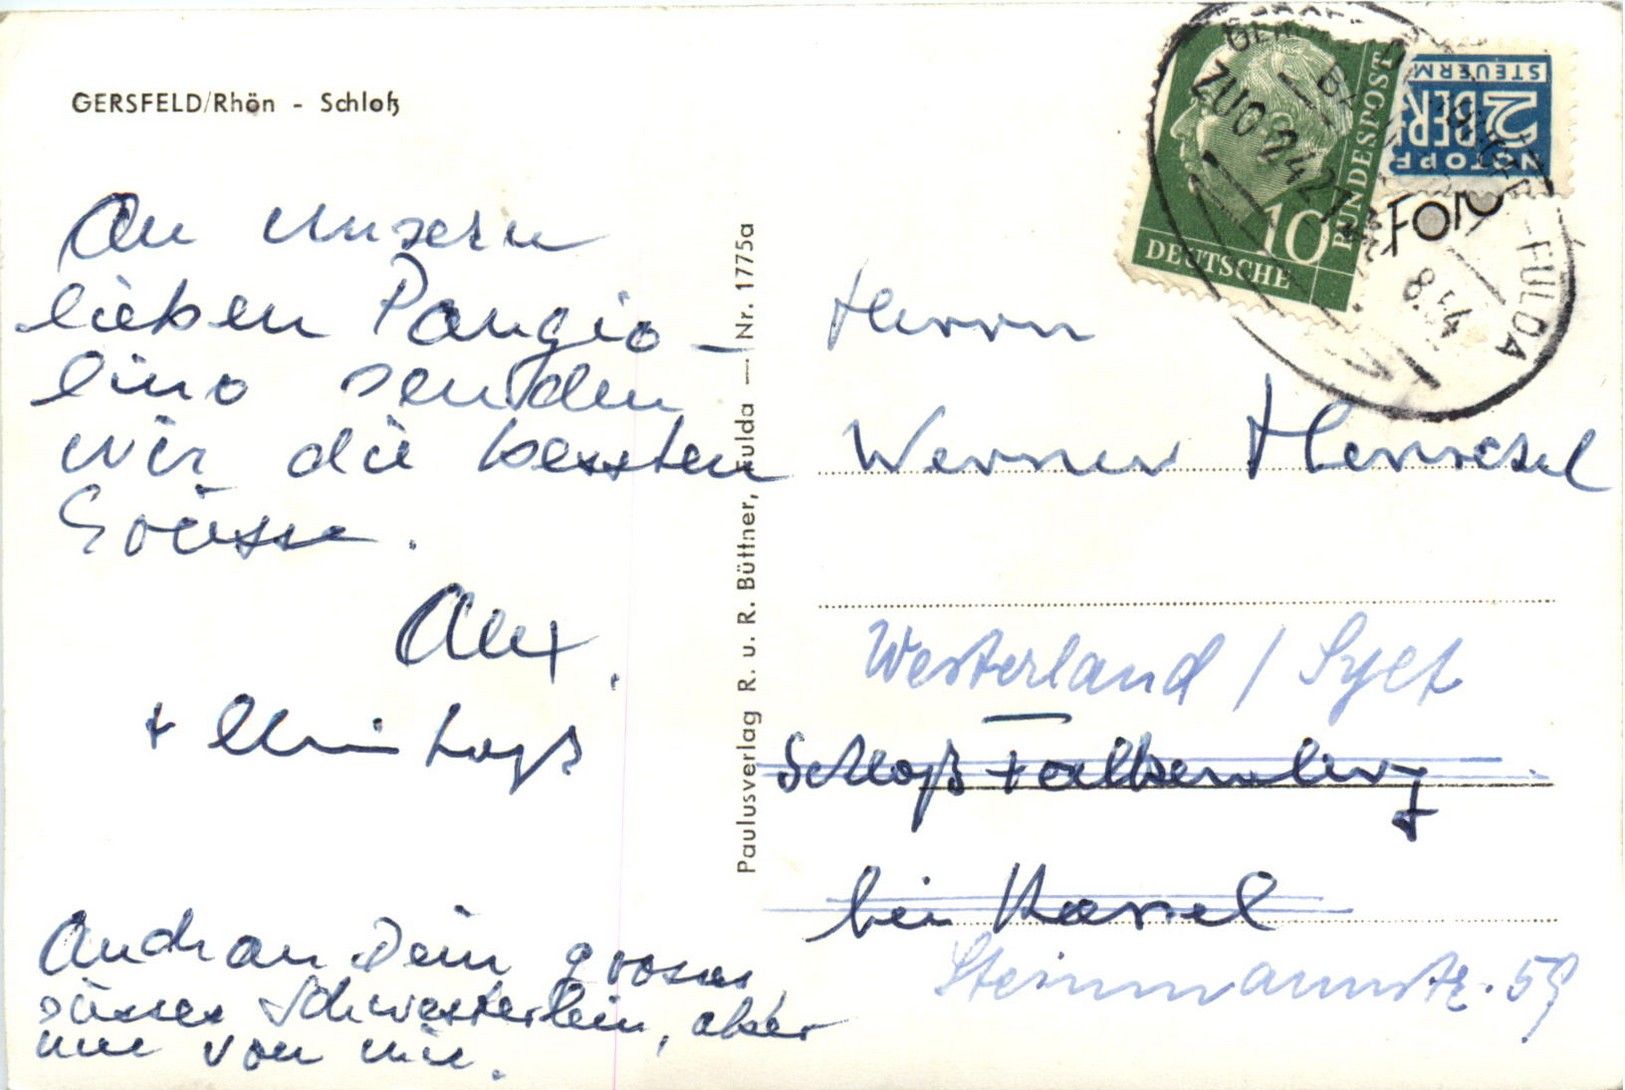 GERSFELD/Rhön - Schloß
An unsern
lieben Pongio-
lino senden
wir die bessten
Grüsse.
Alex
+
Auch an Dein grosses,
süsses Schwesterlein, aber
nur von mir.
Paulusverlag R. u. R. Büttner, Fulda — Nr. 1775a
DEUTSCHE
BUNDESPOST
10
NOTOPFER
2
BERLIN
STEUERM
ZUG 2427
8.54
FULDA
Herrn
Werner Henschel
Westerland / Sylt
Schloß Falkenberg
bei Kassel
Steinmannstr. 59